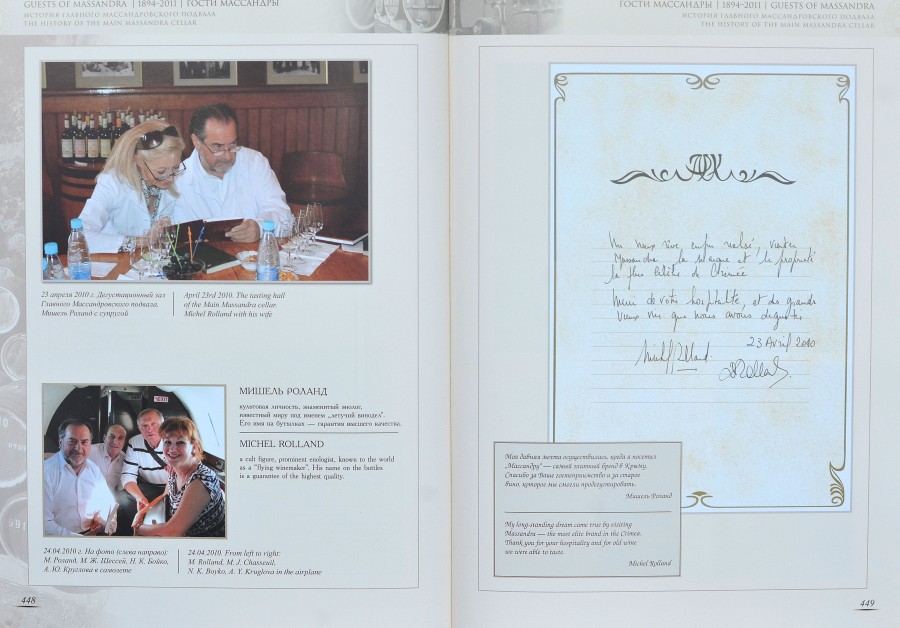 GUESTS OF MASSANDRA | 1894-2011 | ГОСТИ МАССАНДРЫ
ИСТОРИЯ ГЛАВНОГО МАССАНДРОВСКОГО ПОДВАЛА
THE HISTORY OF THE MAIN MASSANDRA CELLAR
23 апреля 2010 г. Дегустационный зал
Главного Массандровского подвала.
Мишель Роланд с супругой
April 23rd 2010. The tasting hall
of the Main Massandra cellar.
Michel Rolland with his wife
МИШЕЛЬ РОЛАНД
культовая личность, знаменитый энолог,
известный миру под именем „летучий винодел".
Его имя на бутылках — гарантия высшего качества.
MICHEL ROLLAND
a cult figure, prominent enologist, known to the world
as a "flying winemaker". His name on the battles
is a guarantee of the highest quality.
24.04.2010 г. На фото (слева направо):
М. Роланд, М. Ж. Шессей, Н. К. Бойко,
А. Ю. Круглова в самолете
24.04.2010. From left to right:
M. Rolland, M. J. Chasseuil,
N. K. Boyko, A. Y. Kruglova in the airplane
448
ГОСТИ МАССАНДРЫ | 1894-2011 | GUESTS OF MASSANDRA
ИСТОРИЯ ГЛАВНОГО МАССАНДРОВСКОГО ПОДВАЛА
THE HISTORY OF THE MAIN MASSANDRA CELLAR
Un vieux rêve, enfin réalisé, visiter
Massandra la marque et la propriété
la plus célèbre de Crimée
Merci de votre hospitalité, et des grands
Vieux vins que nous avons dégusté
23 Avril 2010
Michel Rolland.
Моя давняя мечта осуществилась, когда я посетил
„Массандру" — самый элитный бренд в Крыму.
Спасибо за Ваше гостеприимство и за старое
вино, которое мы смогли продегустировать.
Мишель Роланд
My long-standing dream came true by visiting
Massandra — the most elite brand in the Crimea.
Thank you for your hospitality and for old wine
we were able to taste.
Michel Rolland
449